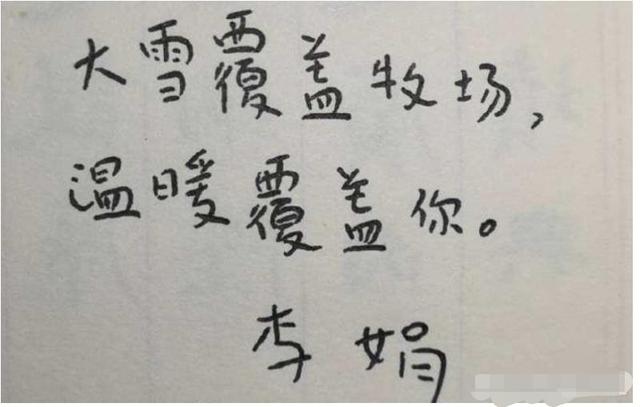 大雪覆盖牧场，
温暖覆盖你。
李娟